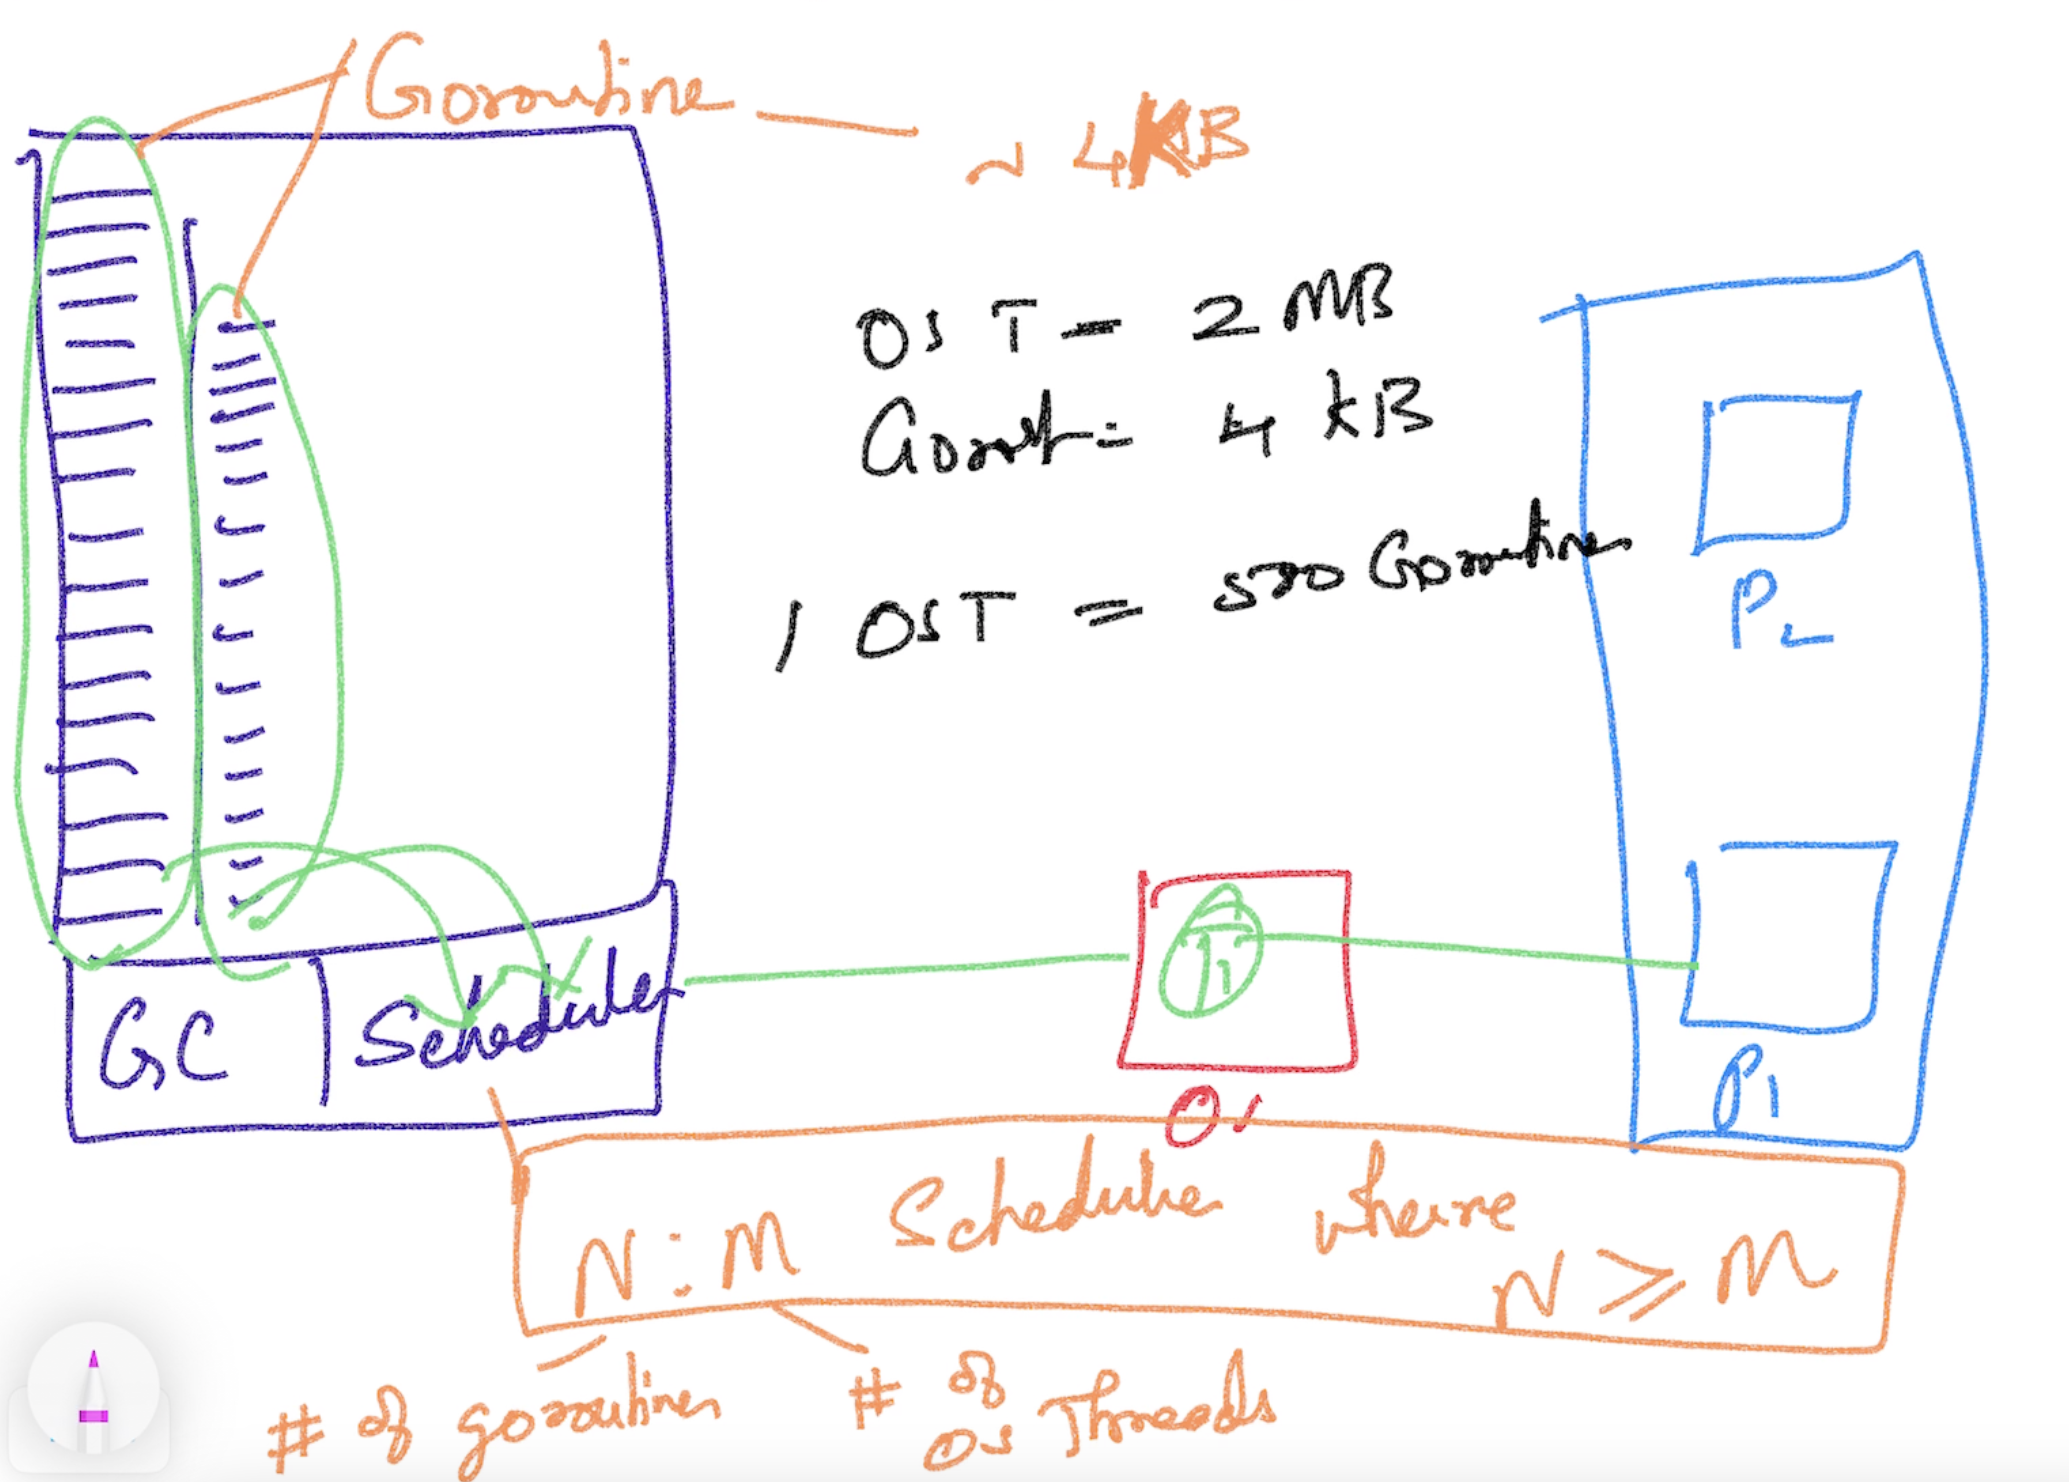 Goroutine
~ 4KB
OS T - 2 MB
= 4 KB
1 OST = 500 Goroutines
P2
T1
GC
Scheduler
OS
P1
N : M Scheduler where
N ≥ M
# of goroutines
# of
OS Threads